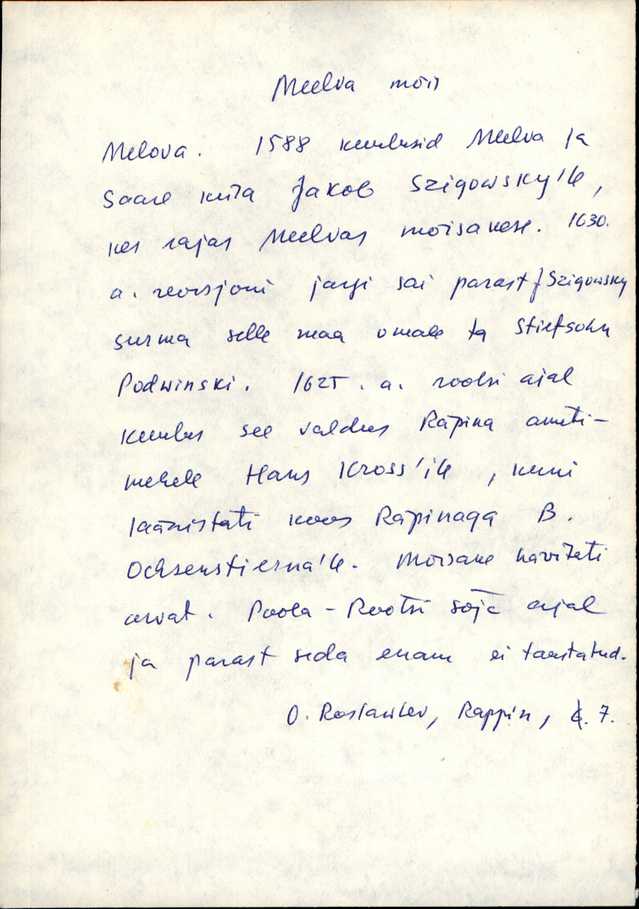 Meelva mõis
Melova. 1588 kuulusid Meelva ja
Saare küla Jakob Szigowsky'le,
kes rajas Meelvas mõisakese. 1630.
a. revisjoni järgi sai pärast J Szigowsky
surma selle maa omale ta Stiefsohn
Podwinski. 1625. a. rootsi ajal
kuulus see valdus Räpina ameti-
mehele Hans Kross'ile, kuni
läänistati koos Räpinaga B.
Ochsenstierna'le. Mõisake hävitati
arvat. Poola-Rootsi sõja ajal
ja pärast seda enam ei taastatud.
O. Roslavlev, Rappin, 7.